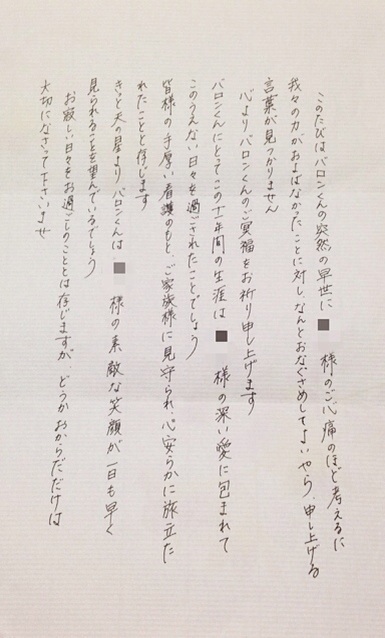 このたびはバロンくんの突然の早世に■様のご心痛のほど考えるに
我々の力がおよばなかったことに対し、なんとおなぐさめしてよいやら、申し上げる
言葉が見つかりません
心よりバロンくんのご冥福をお祈り申し上げます
バロンくんにとってこの十一年間の生涯は■様の深い愛に包まれて
このうえない日々を過ごされたことでしょう
皆様の手厚い看護のもと、ご家族様に見守られ、心安らかに旅立た
れたことと存じます
きっと天の星よりバロンくんは■様の素敵な笑顔が一日も早く
見られることを望んでいるでしょう
お寂しい日々をお過ごしのこととは存じますが、どうかおからだだけは
大切になさって下さいませ